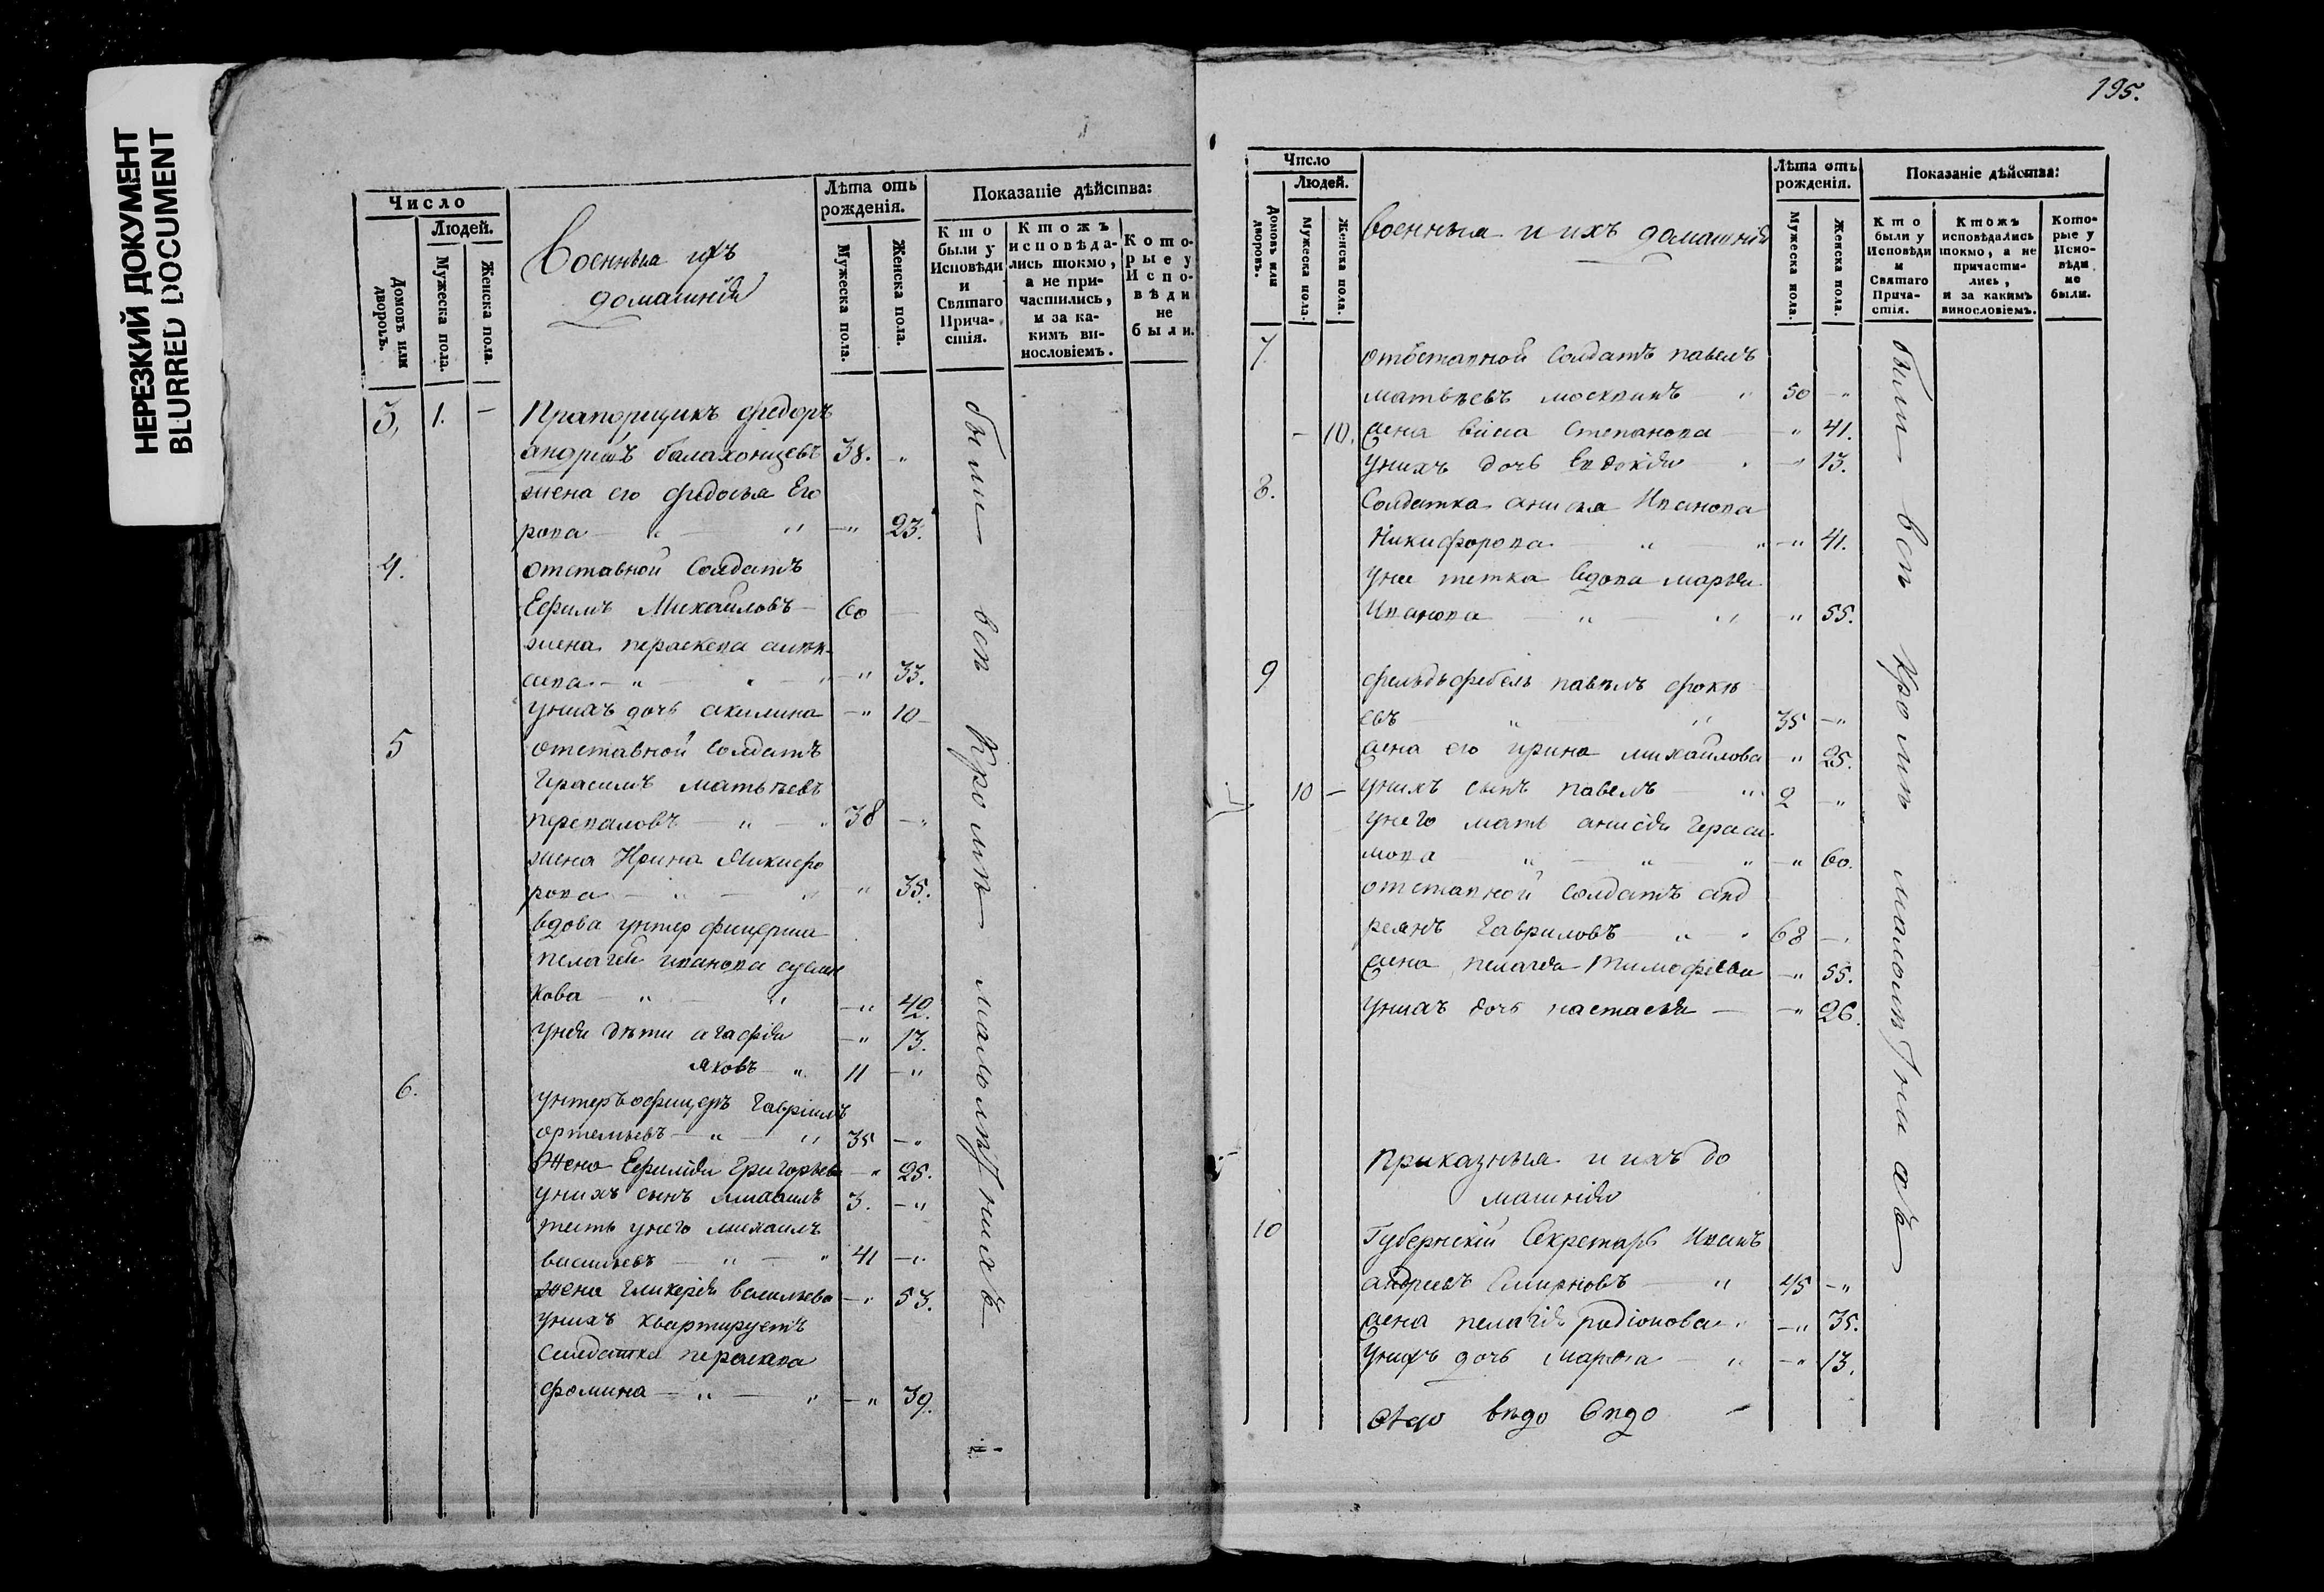 НЕРЕЗКИЙ ДОКУМЕНТ
BLURRED DOCUMENT
Число
Людей.
Домовъ или дворовъ.
Мужеска пола.
Женска пола.
Военныя ихъ
домашнія
Лѣта отъ
рожденія.
Мужеска пола.
Женска пола.
Показаніе дѣйства:
Кто
были у
Исповѣди
и
Святаго
Прича-
стія.
Ктожъ
исповѣда-
лись токмо,
а не при-
частились,
и за ка-
кимъ ви-
нословіемъ.
Кото-
рые у
Испо-
вѣди
не
были.
3, 1. — Прапорщикъ федоръ
андреевъ балахонцевъ 38. "
жена его федосья Его
рова — " — " —" 23.
4. отставной Солдатъ
Ефимъ Михайловъ — 60 —
жена
—" 33.
унихъ дочь акилина —" 10 —
5 отставной Солдатъ
Герасимъ матвеевъ
перепаловъ — " — " 38 —"
жена Ирина Никифо
рова — " — " " 35.
вдова унтер фицерша
пелагея иванова
кова — " — " —" 40.
унея дѣти агафія —" 13.
яковъ — " 11 —"
6. унтеръофицеръ Гавріилъ
ортемьевъ — " — " 35 —"
жена Ефимія Григорьева —" 25.
унихъ сынъ михаилъ 3. —"
тесть унего михаилъ
васильевъ — " — " 41 —"
жена гликерія васильева —" 53.
унихъ квартируетъ
Солдатка
фомина — " — " —" 39.
были всѣ кромѣ малолѣтнихъ
195.
Число
Людей.
Домовъ или дворовъ.
Мужеска пола.
Женска пола.
военныя и ихъ домашнія
Лѣта отъ
рожденія.
Мужеска пола.
Женска пола.
Показаніе дѣйства:
Кто
были у
Исповѣди
и
Святаго
Прича-
стія.
Ктожъ
исповѣдались
токмо, а не
причасти-
лись,
и за какимъ
винословіемъ.
Кото-
рые у
Испо-
вѣди
не
были.
7. отставной Солдатъ павелъ
матвѣевъ москвинъ — " 50 —"
— 10. жена Степанова — —" 41.
унихъ дочь Евдокія " —" 13.
8. Солдатка Иванова
Никифорова — " — " —" 41.
унее тетка вдова марья
Иванова — " — " " 55.
9 фельдьфебель павелъ фокѣ
евъ — " — " 35 —"
жена его ирина михайлова " 25.
10 — унихъ сынъ павелъ — " 2 —"
унего мать анисія Гераси
мова " — " — " —" 60.
отставной Солдатъ анд
реянъ Гавриловъ — " — " 68 —"
жена пелагея тимофеева —" 55.
унихъ дочь настасья — —" 26.
Приказныя и ихъ до
машнія
10 Губернскій Секретарь Иванъ
андреевъ Смирновъ — " 45 —"
жена пелагія родіонова " —" 35.
унихъ дочь марфа — " —" 13.
были всѣ кромѣ малолѣтнихъ